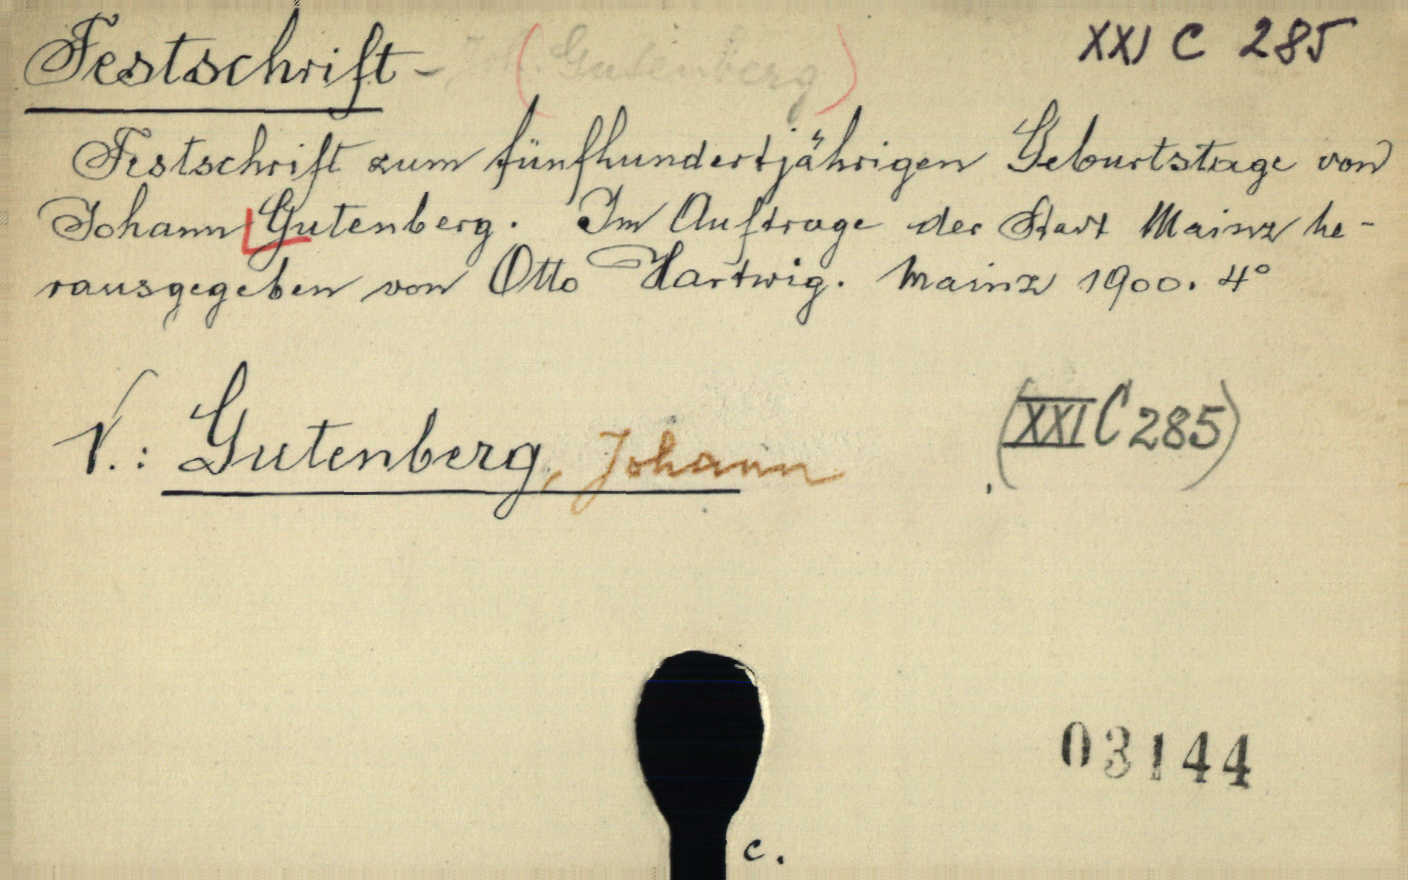 Festschrift - Joh. (Gutenberg) XXI C 285
Festschrift zum fünfhundertjährigen Geburtstage von
Johann Gutenberg. Im Auftrage der Stadt Mainz he-
rausgegeben von Otto Hartwig. Mainz 1900. 4°
V.: Gutenberg, Johann (XXI C 285)
03144
c.